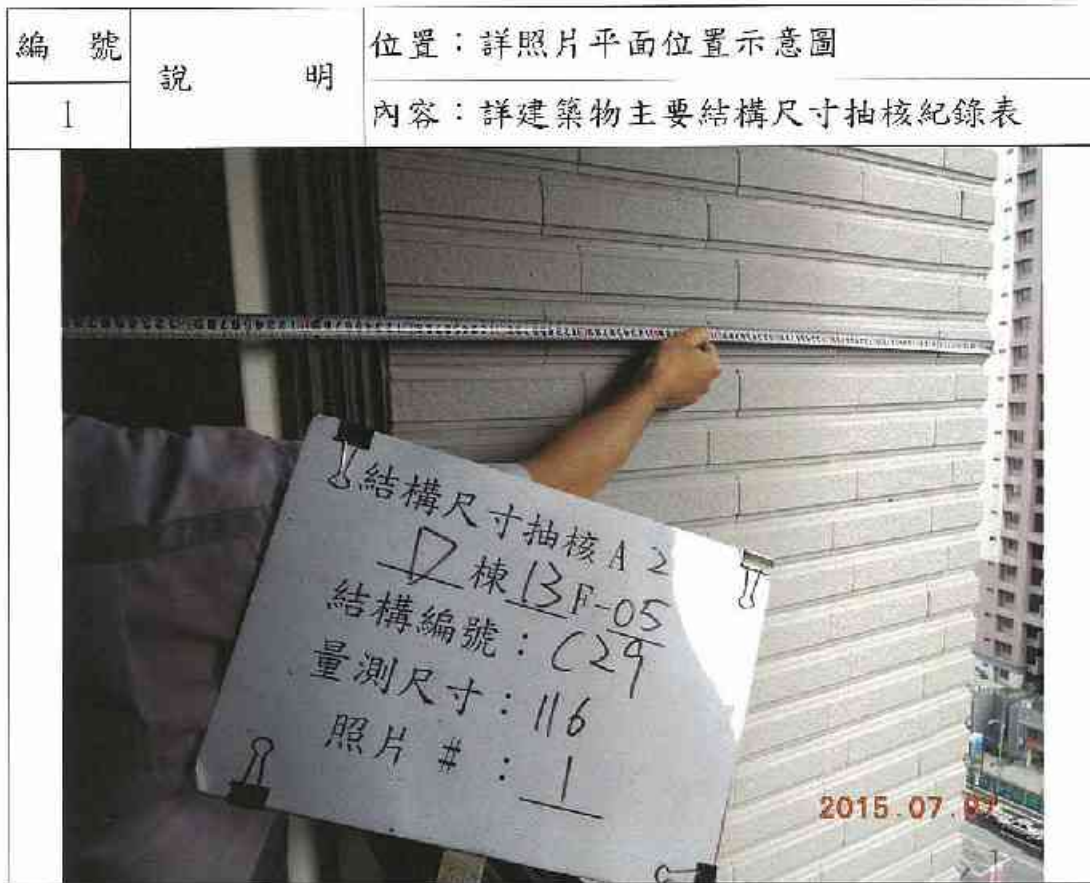 編號
說明
位置：詳照片平面位置示意圖
1
內容：詳建築物主要結構尺寸抽核紀錄表
結構尺寸抽核A2
D棟13F-05
結構編號：C29
量測尺寸：116
照片#：1
2015.07.